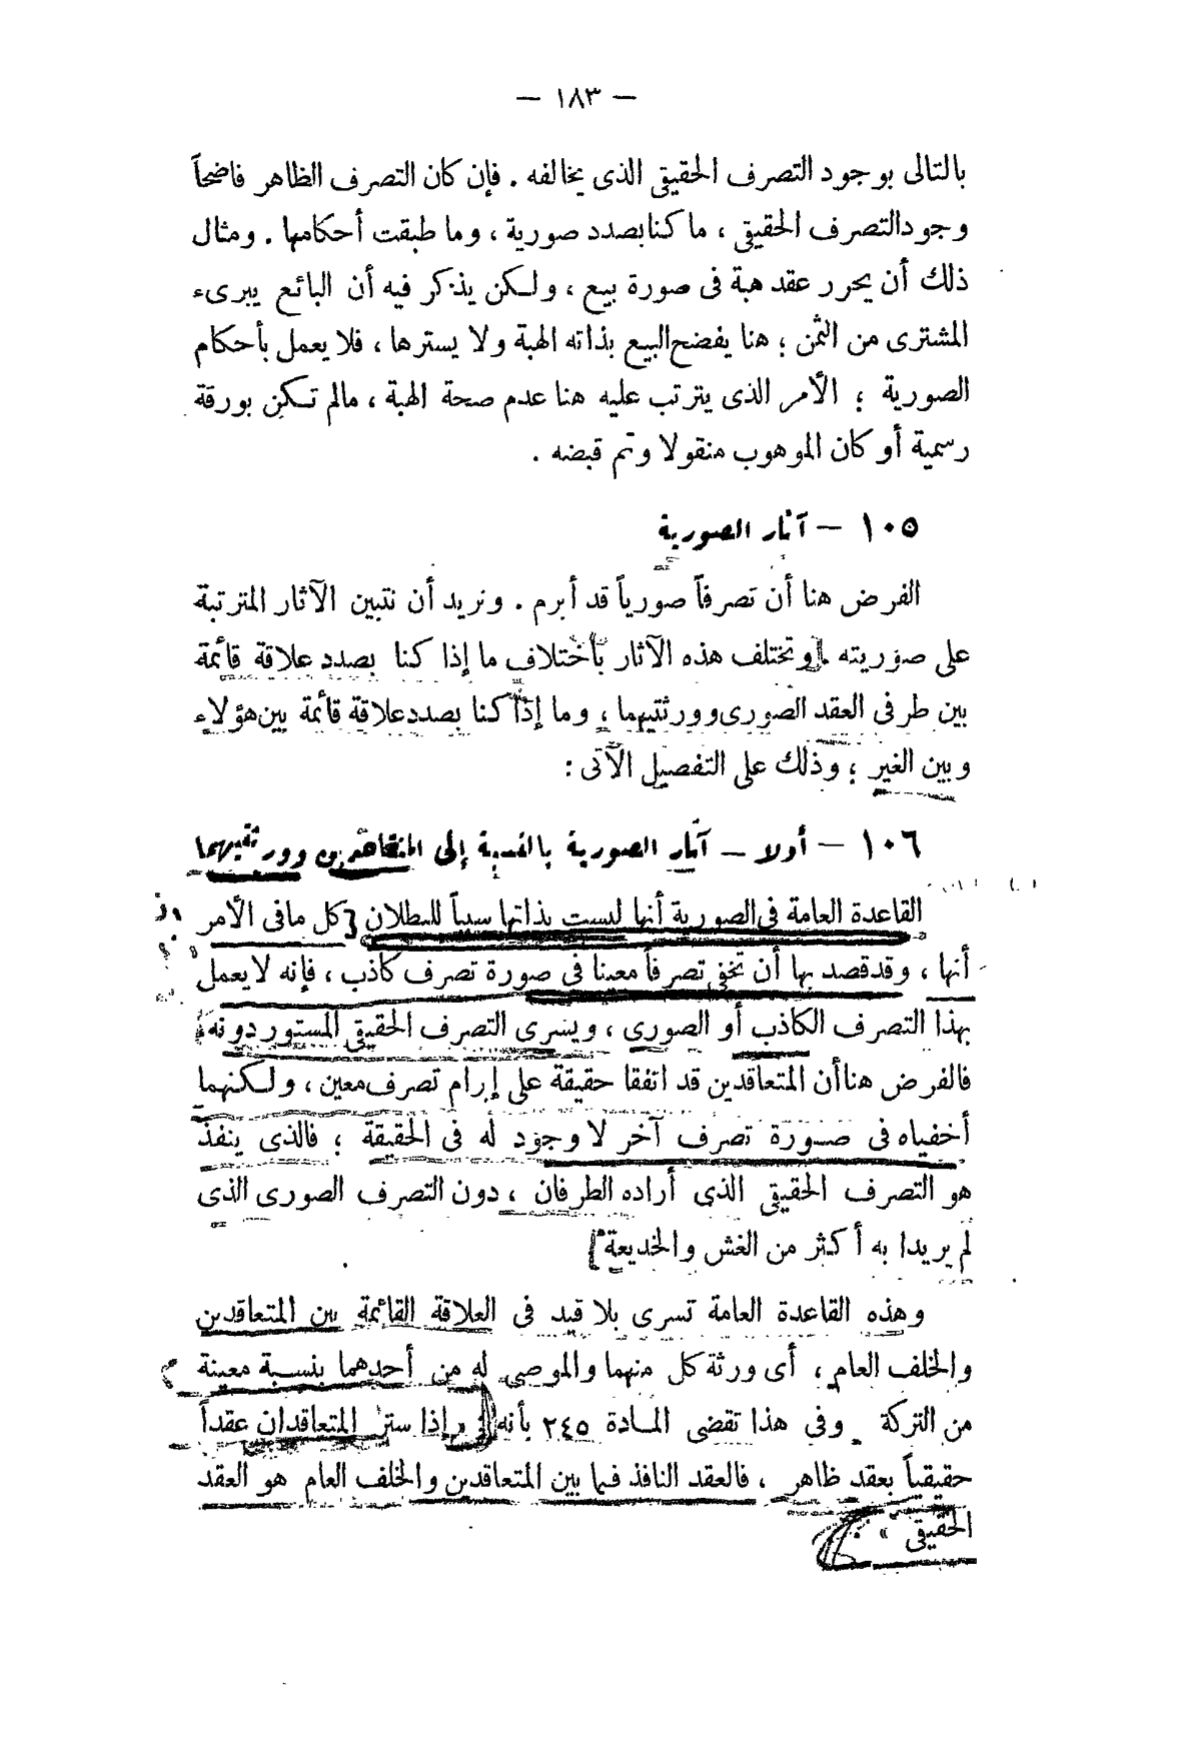 — ١٨٣ —
بالتالى بوجود التصرف الحقيقى الذى يخالفه . فإن كان التصرف الظاهر فاضحاً
وجود التصرف الحقيقى ، ما كنا بصدد صورية ، وما طبقت أحكامها . ومثال
ذلك أن يحرر عقد هبة فى صورة بيع ، ولكن يذكر فيه أن البائع يبرىء
المشترى من الثمن ؛ هنا يفضح البيع بذاته الهبة ولا يسترها ، فلا يعمل بأحكام
الصورية ؛ الأمر الذى يترتب عليه هنا عدم صحة الهبة ، مالم تكن بورقة
رسمية أو كان الموهوب منقولا وتم قبضه .
١٠٥ — آثار الصورية
الفرض هنا أن تصرفاً صورياً قد أبرم . ونريد أن نتبين الآثار المترتبة
على صوريته . وتختلف هذه الآثار بأختلاف ما إذا كنا بصدد علاقة قائمة
بين طرفى العقد الصورى وورثتيهما ، وما إذا كنا بصدد علاقة قائمة بين هؤلاء
وبين الغير ؛ وذلك على التفصيل الآتى :
١٠٦ — أولا — آثار الصورية بالنسبة إلى المتعاقدين وورثتيهما
القاعدة العامة فى الصورية أنها ليست بذاتها سبباً للبطلان [ كل ما فى الأمر
أنها ، وقد قصد بها أن تخفى تصرفاً معينا فى صورة تصرف كاذب ، فإنه لا يعمل
بهذا التصرف الكاذب أو الصورى ، ويسرى التصرف الحقيقى المستور دونه
فالفرض هنا أن المتعاقدين قد اتفقا حقيقة على إبرام تصرف معين ، ولكنهما
أخفياه فى صورة تصرف آخر لا وجود له فى الحقيقة ؛ فالذى ينفذ
هو التصرف الحقيقى الذى أراده الطرفان ، دون التصرف الصورى الذى
لم يريدا به أكثر من الغش والخديعة ]
وهذه القاعدة العامة تسرى بلا قيد فى العلاقة القائمة بين المتعاقدين
والخلف العام ، أى ورثة كل منهما والموصى له من أحدهما بنسبة معينة
من التركة . وفى هذا تقضى المادة ٢٤٥ بأنه إذا ستر المتعاقدان عقداً
حقيقياً بعقد ظاهر ، فالعقد النافذ فيما بين المتعاقدين والخلف العام هو العقد
الحقيقى » .